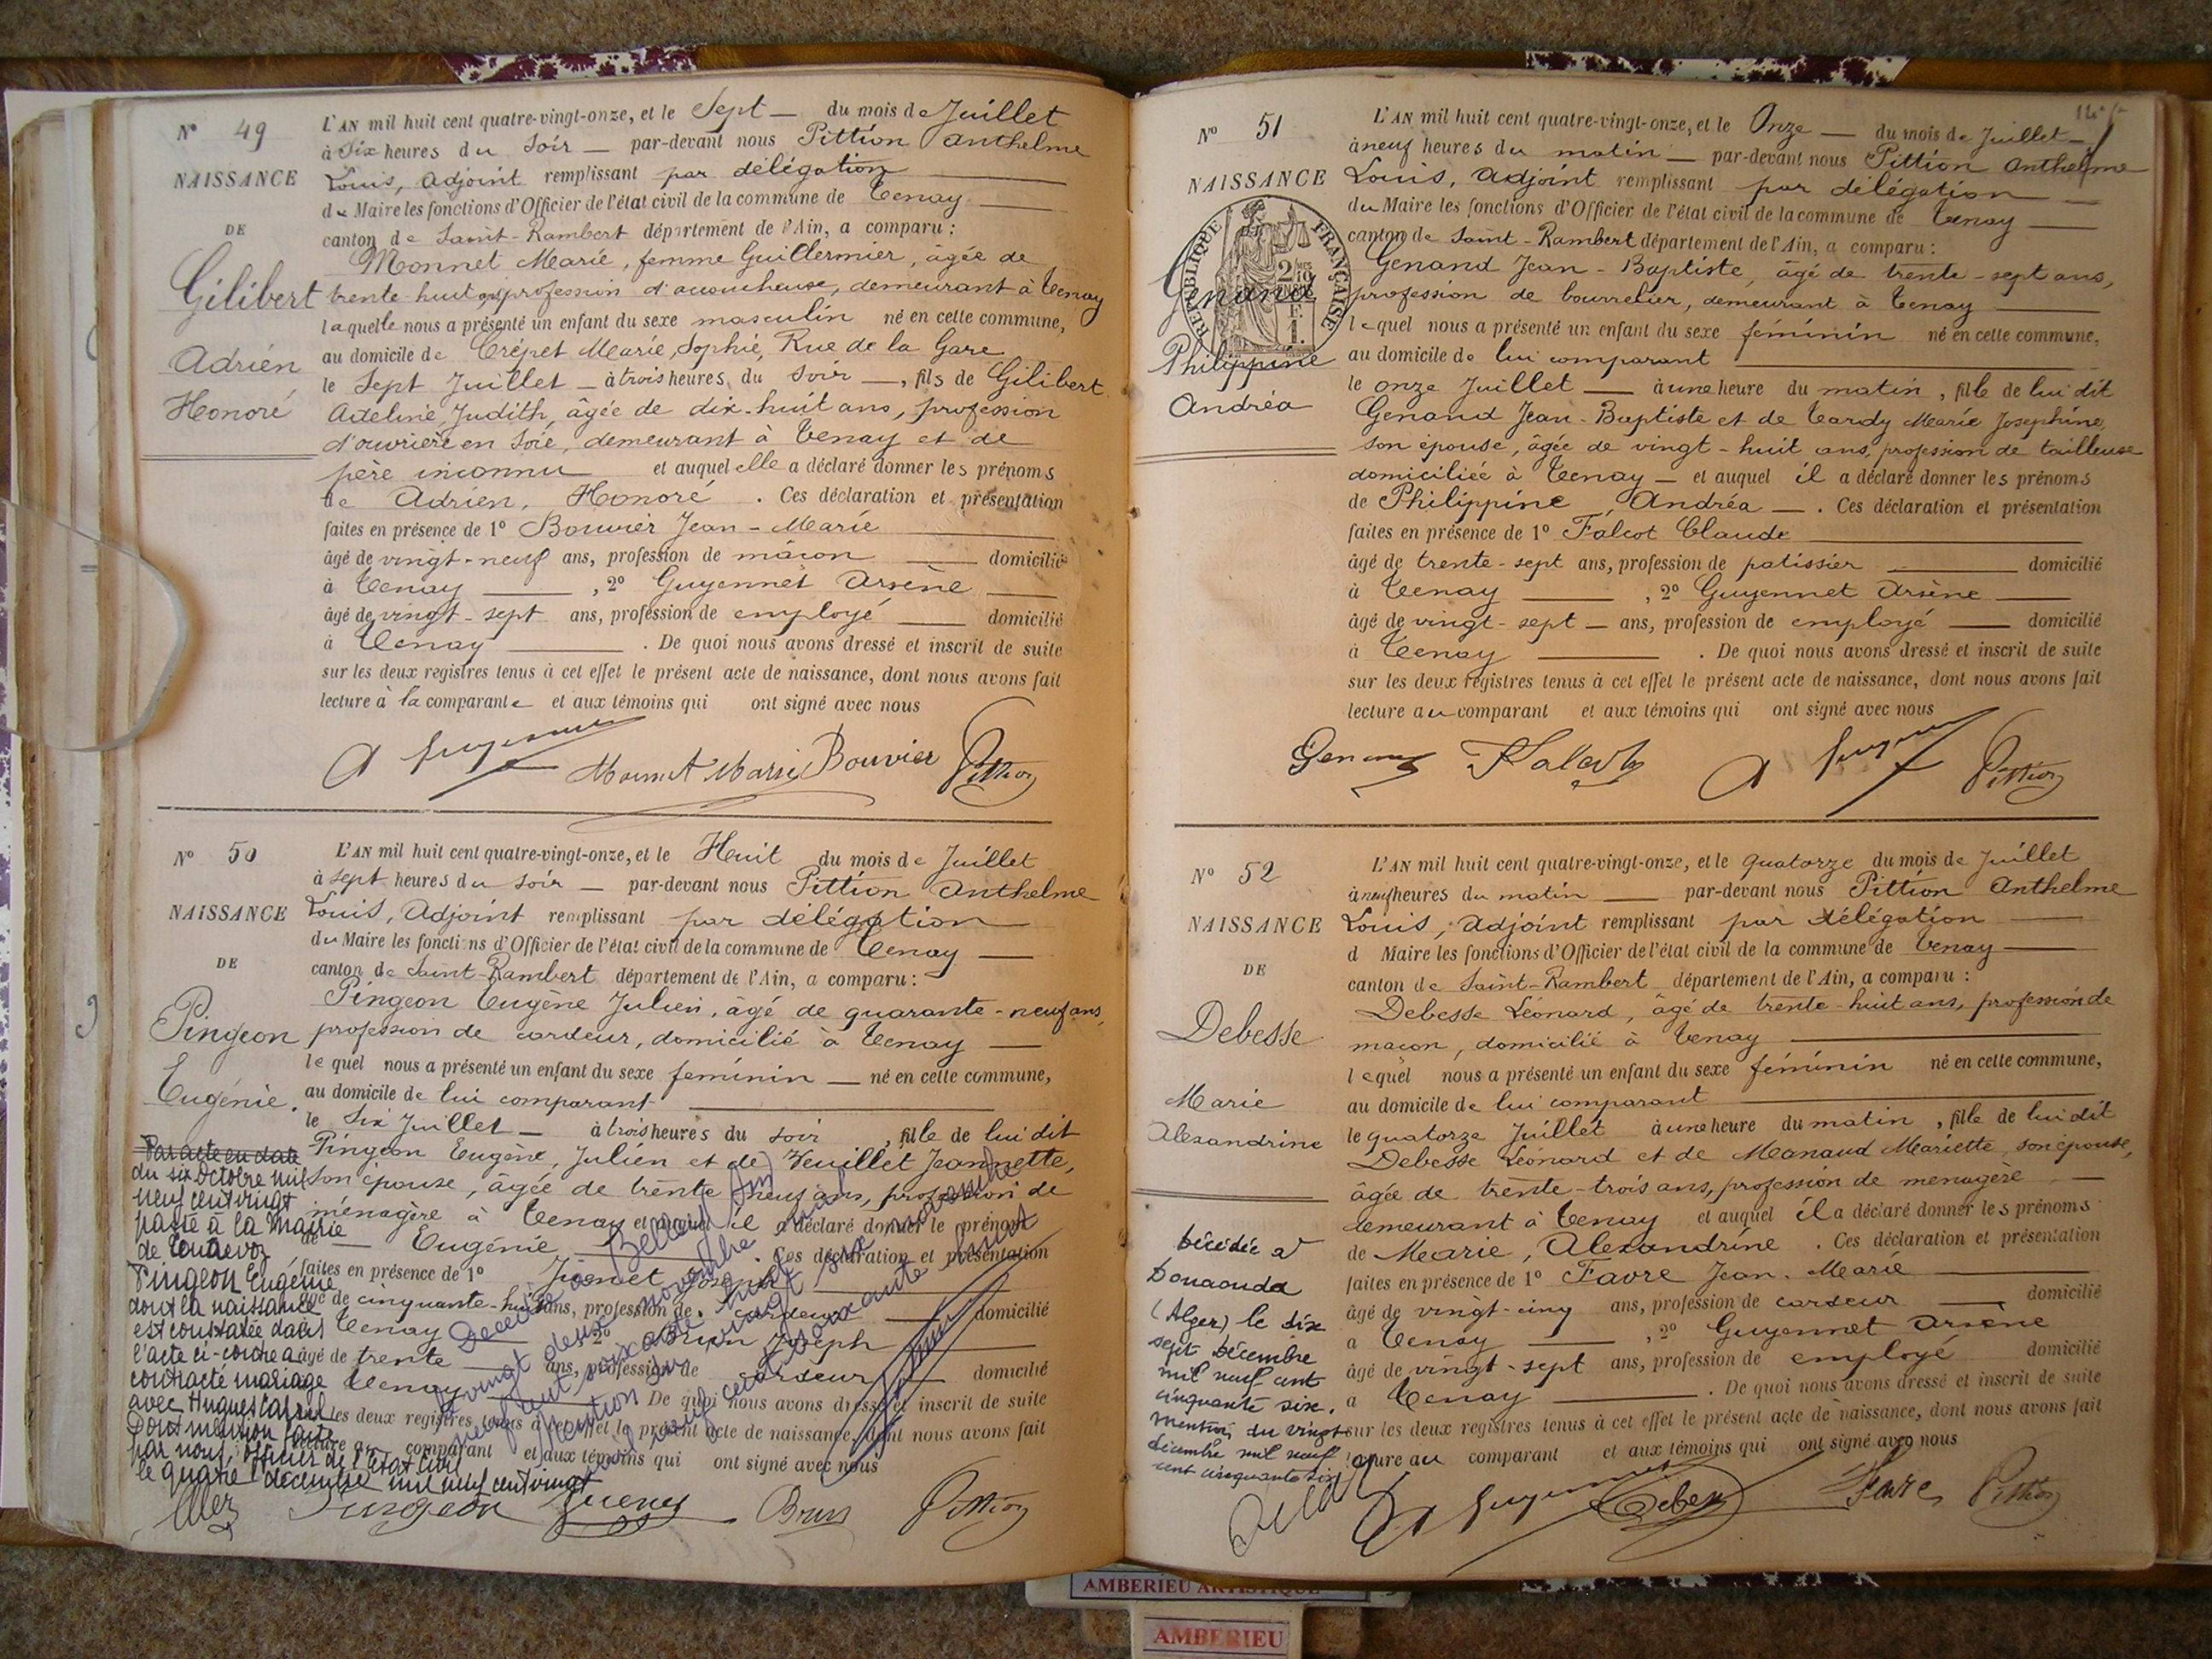 N° 49
NAISSANCE
DE
Gilibert
Adrien
Honoré
L'AN mil huit cent quatre-vingt-onze, et le Sept — du mois de Juillet
à Six heures du Soir — par-devant nous Pittion Anthelme
Louis, Adjoint remplissant par délégation
du Maire les fonctions d'Officier de l'état civil de la commune de Tenay
canton de Saint-Rambert département de l'Ain, a comparu :
Monnet Marie, femme Guillermier, âgée de
trente-huit ans profession d'accoucheuse, demeurant à Tenay
laquelle nous a présenté un enfant du sexe masculin né en cette commune,
au domicile de Crépet Marie, Sophie, Rue de la Gare
le Sept Juillet — à trois heures du Soir —, fils de Gilibert
Adeline, Judith, âgée de dix-huit ans, profession
d'ouvrière en Soie, demeurant à Tenay et de
père inconnu et auquel elle a déclaré donner les prénoms
de Adrien, Honoré . Ces déclaration et présentation
faites en présence de 1° Bouvier Jean-Marie
âgé de vingt-neuf ans, profession de maçon domicilié
à Tenay , 2° Guyennet Arsène
âgé de vingt-sept ans, profession de employé domicilié
à Tenay . De quoi nous avons dressé et inscrit de suite
sur les deux registres tenus à cet effet le présent acte de naissance, dont nous avons fait
lecture à la comparante et aux témoins qui ont signé avec nous
Monnet Marie Bouvier Pittion
N° 50
NAISSANCE
DE
Pingeon
Eugénie.
L'AN mil huit cent quatre-vingt-onze, et le Huit du mois de Juillet
à sept heures du Soir — par-devant nous Pittion Anthelme
Louis, Adjoint remplissant par délégation
du Maire les fonctions d'Officier de l'état civil de la commune de Tenay
canton de Saint-Rambert département de l'Ain, a comparu :
Pingeon Eugène Julien, âgé de quarante-neuf ans,
profession de cardeur, domicilié à Tenay
lequel nous a présenté un enfant du sexe féminin — né en cette commune,
au domicile de lui comparant
le Six Juillet — à trois heures du soir , fille de lui dit
Pingeon Eugène, Julien et de Veuillet Jeannette,
son épouse, âgée de trente neuf ans, profession de
ménagère à Tenay et auquel il a déclaré donner le prénom
de — Eugénie Ces déclaration et présentation
faites en présence de 1° Joseph
âgé de cinquante-huit ans, profession de cardeur domicilié
Tenay 2° Brun Joseph
âgé de trente ans, profession de cardeur domicilié
Tenay De quoi nous avons dressé et inscrit de suite
les deux registres tenus à cet effet le présent acte de naissance, dont nous avons fait
lecture au comparant et aux témoins qui ont signé avec nous
Par acte en date
du six Octobre mil
neuf cent vingt
passé à la Mairie
de
Pingeon Eugénie
dont la naissance
est constatée dans
l'acte ci-contre a
contracté mariage
avec Hugues
Dont mention faite
par nous, officier de l'état civil
le quatre décembre mil neuf cent vingt
Décédée à Belley (Ain)
vingt deux novembre mil
neuf cent soixante huit
Mention du vingt six novembre
mil neuf cent soixante huit
Pingeon Brun Pittion
N° 51
NAISSANCE
RÉPUBLIQUE FRANÇAISE
Genand
Philippine
Andréa
L'AN mil huit cent quatre-vingt-onze, et le Onze — du mois de Juillet
à neuf heures du matin — par-devant nous Pittion Anthelme
Louis, Adjoint remplissant par délégation
du Maire les fonctions d'Officier de l'état civil de la commune de Tenay
canton de Saint-Rambert département de l'Ain, a comparu :
Genand Jean-Baptiste, âgé de trente-sept ans,
profession de bourrelier, demeurant à Tenay
lequel nous a présenté un enfant du sexe féminin né en cette commune,
au domicile de lui comparant
le onze Juillet — à une heure du matin , fille de lui dit
Genand Jean-Baptiste et de Tardy Marie Josephine,
son épouse, âgée de vingt-huit ans, profession de tailleuse
domiciliée à Tenay — et auquel il a déclaré donner les prénoms
de Philippine, Andréa —. Ces déclaration et présentation
faites en présence de 1° Falcot Claude
âgé de trente-sept ans, profession de patissier domicilié
à Tenay , 2° Guyennet Arsène
âgé de vingt-sept — ans, profession de employé domicilié
à Tenay . De quoi nous avons dressé et inscrit de suite
sur les deux registres tenus à cet effet le présent acte de naissance, dont nous avons fait
lecture au comparant et aux témoins qui ont signé avec nous
Genand Falcot Pittion
N° 52
NAISSANCE
DE
Debesse
Marie
Alexandrine
L'AN mil huit cent quatre-vingt-onze, et le quatorze du mois de Juillet
à neuf heures du matin — par-devant nous Pittion Anthelme
Louis, Adjoint remplissant par délégation
d Maire les fonctions d'Officier de l'état civil de la commune de Tenay
canton de Saint-Rambert département de l'Ain, a comparu :
Debesse Léonard, âgé de trente-huit ans, profession de
maçon, domicilié à Tenay
lequel nous a présenté un enfant du sexe féminin né en cette commune,
au domicile de lui comparant
le quatorze Juillet à une heure du matin , fille de lui dit
Debesse Léonard et de Manaud Mariette, son épouse,
âgée de trente-trois ans, profession de ménagère
demeurant à Tenay et auquel il a déclaré donner les prénoms
de Marie, Alexandrine . Ces déclaration et présentation
faites en présence de 1° Favre Jean-Marie
âgé de vingt-cinq ans, profession de cardeur domicilié
a Tenay , 2° Guyennet Arsène
âgé de vingt-sept ans, profession de employé domicilié
a Tenay . De quoi nous avons dressé et inscrit de suite
sur les deux registres tenus à cet effet le présent acte de naissance, dont nous avons fait
lecture au comparant et aux témoins qui ont signé avec nous
Décédée à
Douaouda
(Alger) le dix
sept Décembre
mil neuf cent
cinquante six.
Mention du vingt
décembre mil neuf
cent cinquante six
Favre Pittion
AMBERIEU ARTISTIQUE
AMBERIEU